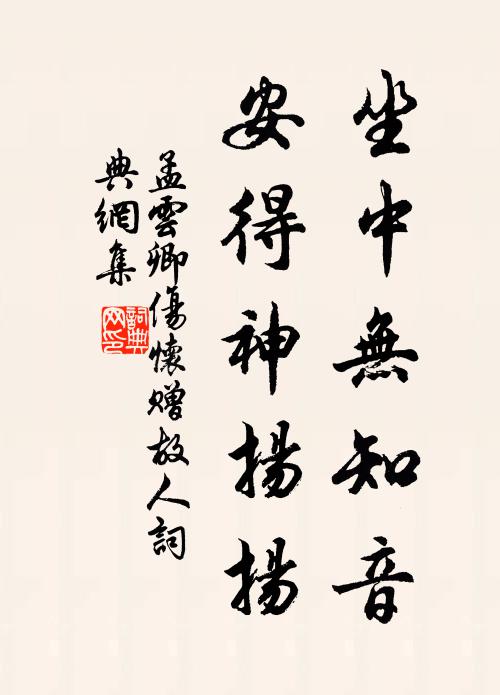 坐中無知音
安得神揚揚
孟雲卿傷懷贈故人詞
典網集
詞典網印